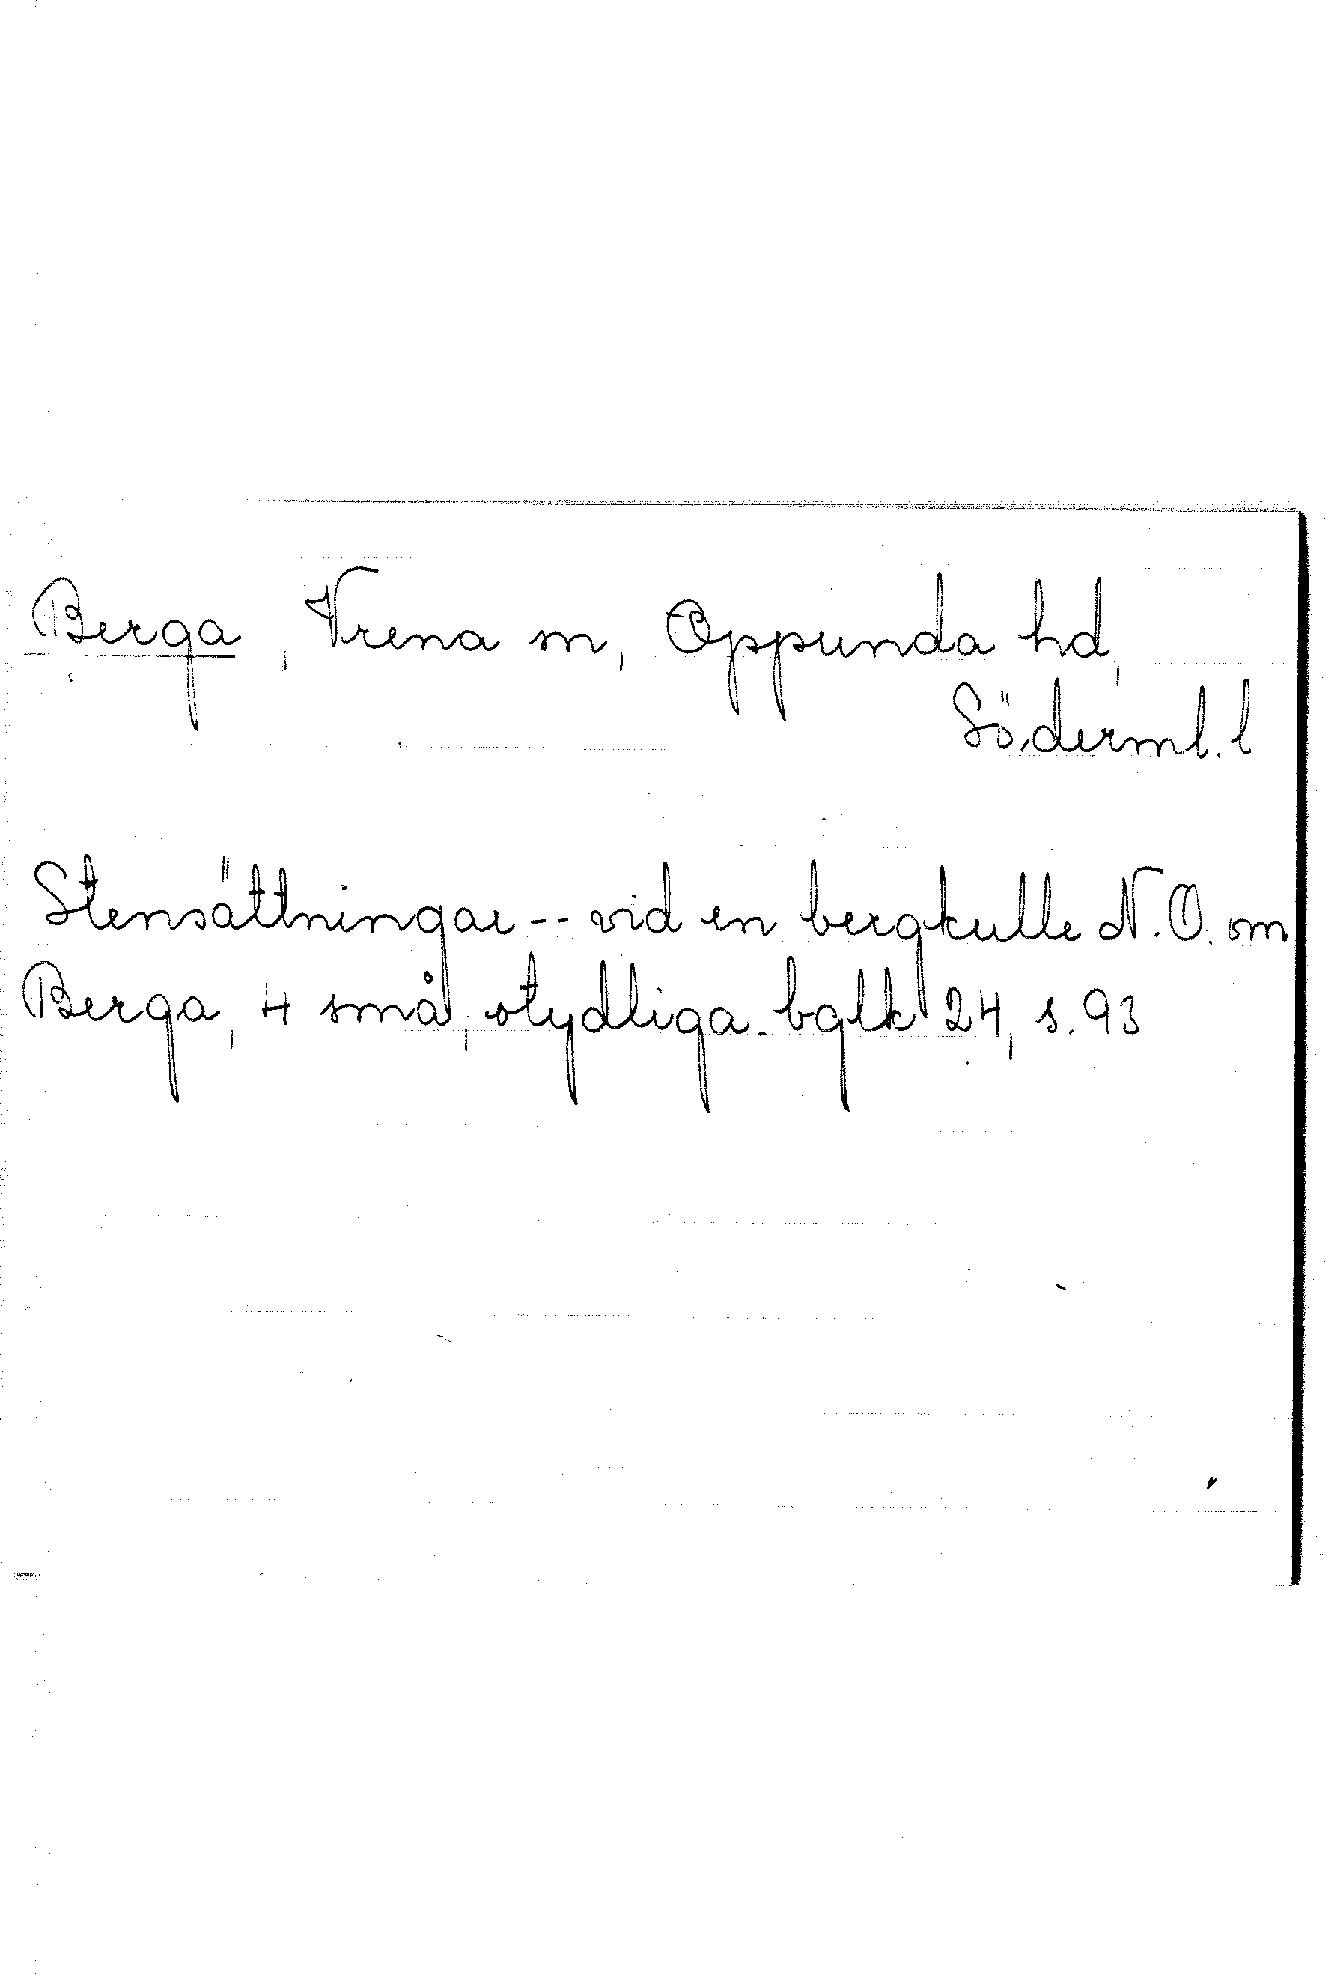 Berga, Vrena sn, Oppunda hd,
Söderml. l
Stensättningar -- vid en bergkulle N.O. om
Berga, 4 små, otydliga. bglk 24, s. 93